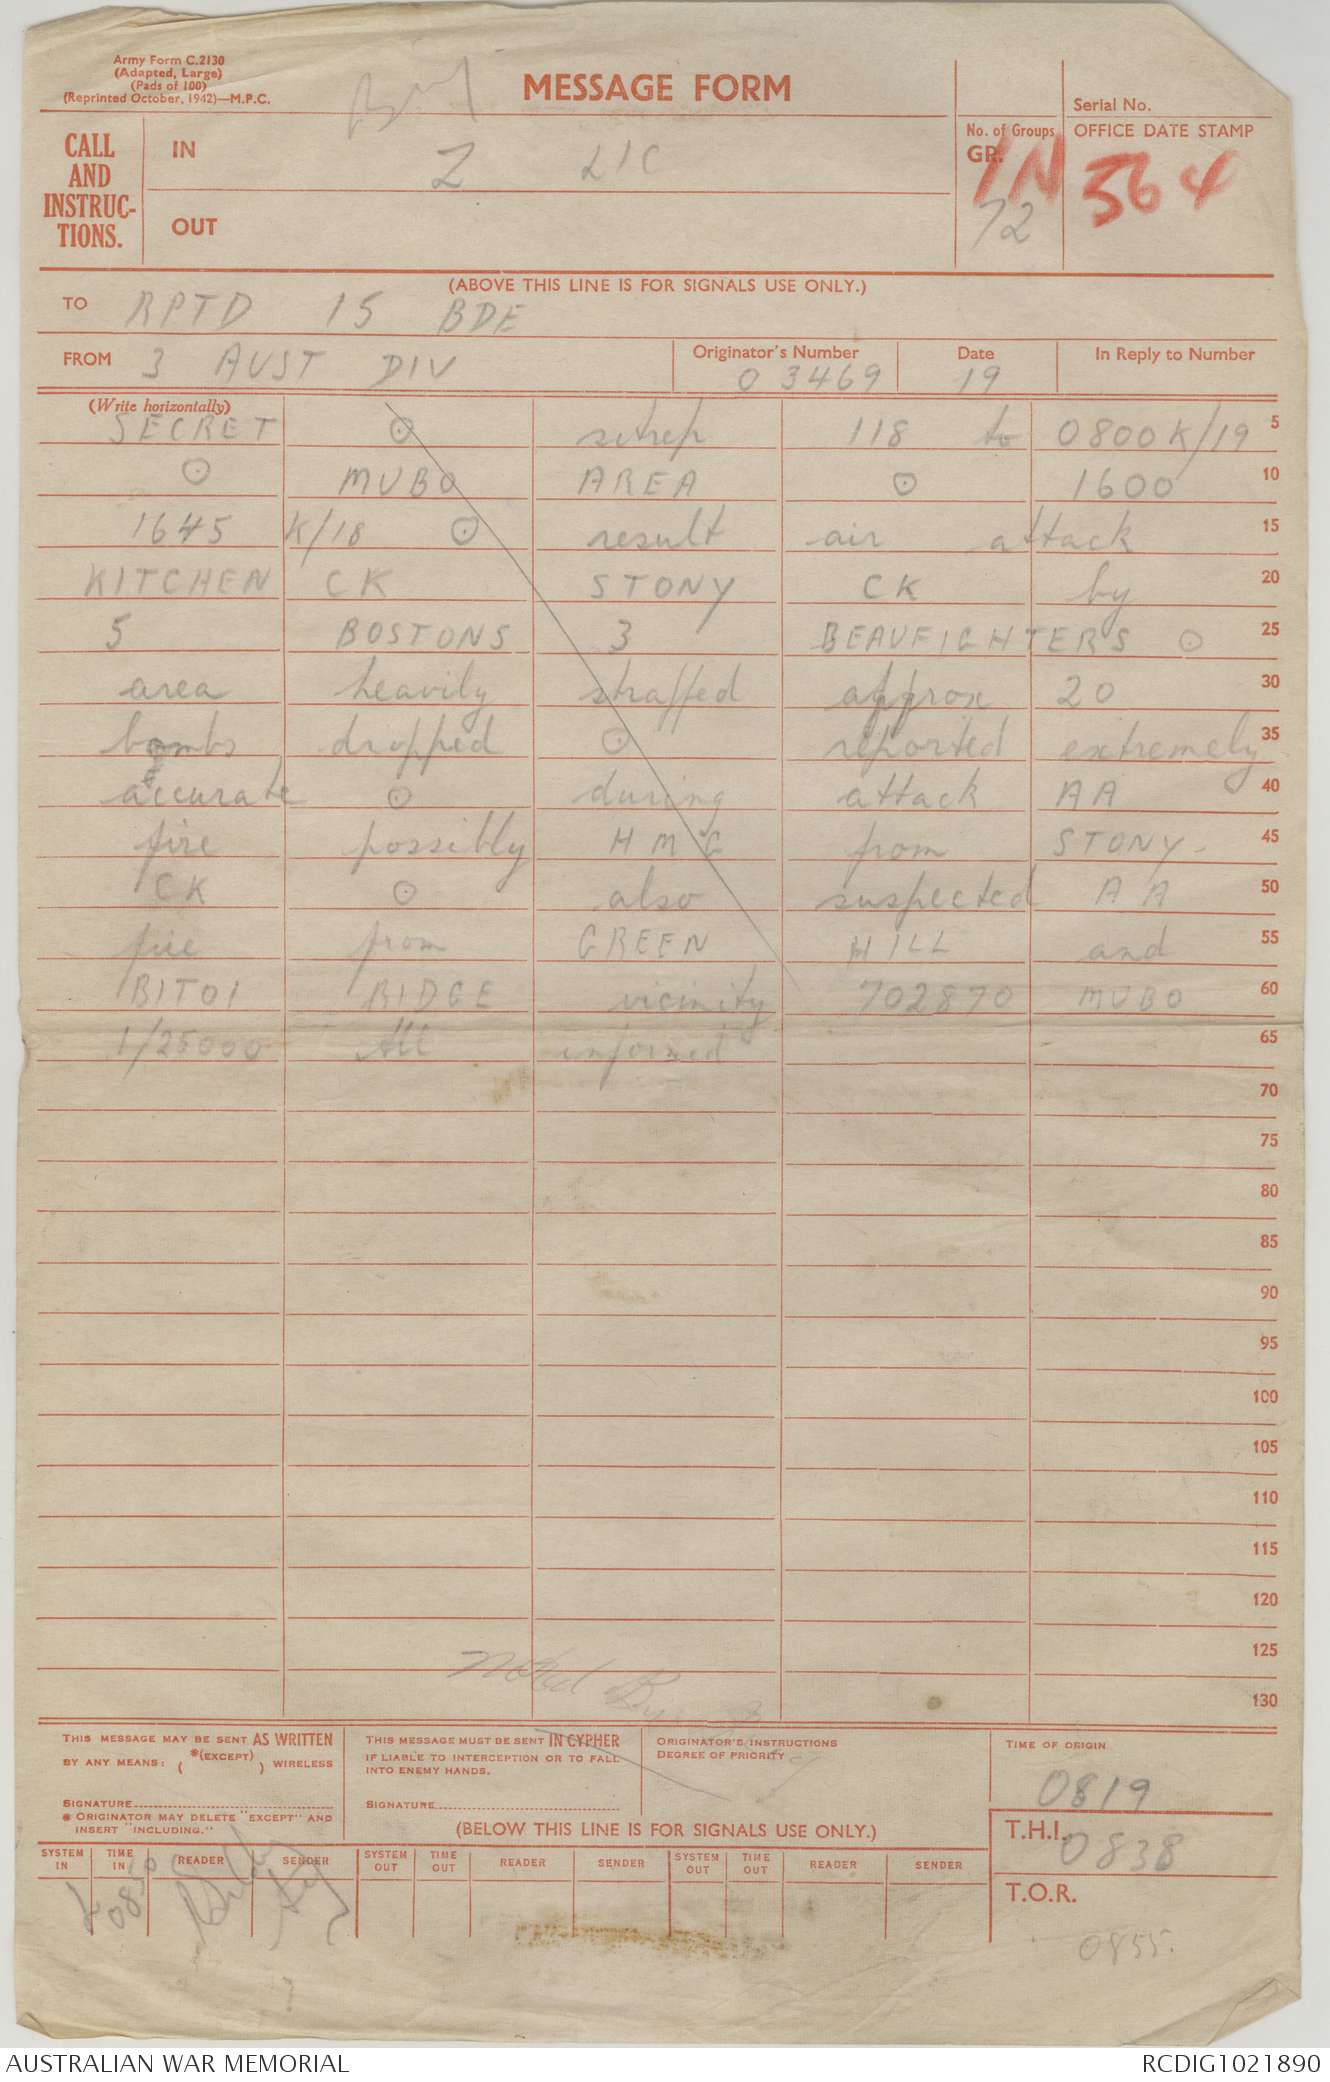 Army Form C.2130
(Adapted, Large)
(Pads of 100)
(Reprinted October, 1942)—M.P.C.
MESSAGE FORM
Serial No.
CALL AND INSTRUC-TIONS.
IN Z LIC
OUT
No. of Groups
GR.
72
OFFICE DATE STAMP
IN 564
(ABOVE THIS LINE IS FOR SIGNALS USE ONLY.)
TO RPTD 15 BDE
FROM 3 AUST DIV
Originator's Number
03469
Date
19
In Reply to Number
(Write horizontally)
SECRET ⊙ sitrep 118 to 0800K/19 5
⊙ MUBO AREA ⊙ 1600 10
1645 K/18 ⊙ result air attack 15
KITCHEN CK STONY CK by 20
5 BOSTONS 3 BEAUFIGHTERS ⊙ 25
area heavily straffed approx 20 30
bombs dropped ⊙ reported extremely 35
accurate ⊙ during attack AA 40
fire possibly HMG from STONY 45
CK ⊙ also suspected AA 50
fire from GREEN HILL and 55
BITOI RIDGE vicinity 702870 MUBO 60
1/25000 All informed 65
70
75
80
85
90
95
100
105
110
115
120
125
130
THIS MESSAGE MAY BE SENT AS WRITTEN
BY ANY MEANS: ( *(EXCEPT) ) WIRELESS
SIGNATURE
* ORIGINATOR MAY DELETE "EXCEPT" AND
INSERT "INCLUDING."
THIS MESSAGE MUST BE SENT IN CYPHER
IF LIABLE TO INTERCEPTION OR TO FALL
INTO ENEMY HANDS.
SIGNATURE
ORIGINATOR'S INSTRUCTIONS
DEGREE OF PRIORITY
TIME OF ORIGIN
0819
(BELOW THIS LINE IS FOR SIGNALS USE ONLY.)
T.H.I. 0838
T.O.R.
0855
SYSTEM IN TIME IN READER SENDER SYSTEM OUT TIME OUT READER SENDER SYSTEM OUT TIME OUT READER SENDER
AUSTRALIAN WAR MEMORIAL
RCDIG1021890